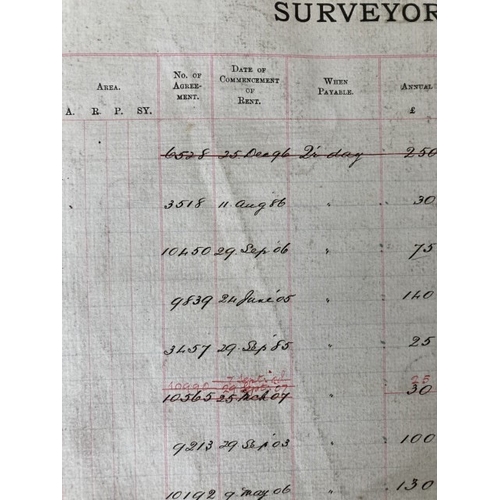 SURVEYOR
AREA. No. OF AGREE-MENT. DATE OF COMMENCEMENT OF RENT. WHEN PAYABLE. ANNUAL
A. R. P. SY. £
6528 25 Dec 96 Qr day 250
3518 11 Aug 86 " 30
10450 29 Sep 06 " 75
9839 24 June 05 " 140
3457 29 Sep 85 " 25
10990 29 07 25
10565 25 Mch 07 " 30
9213 29 Sep 03 " 100
10192 9 May 06 " 130